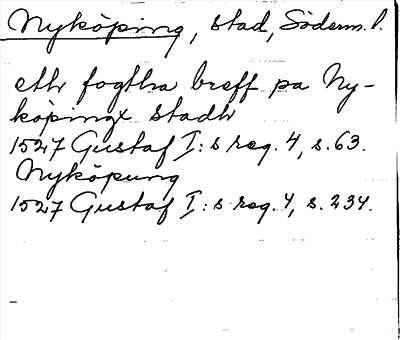 Nyköping, stad, Söderm. l.
eth fogtha breff pa Ny-
köpingx stadh
1527 Gustaf I:s reg. 4, s. 63.
Nyköpung
1527 Gustaf I:s reg. 4, s. 234.